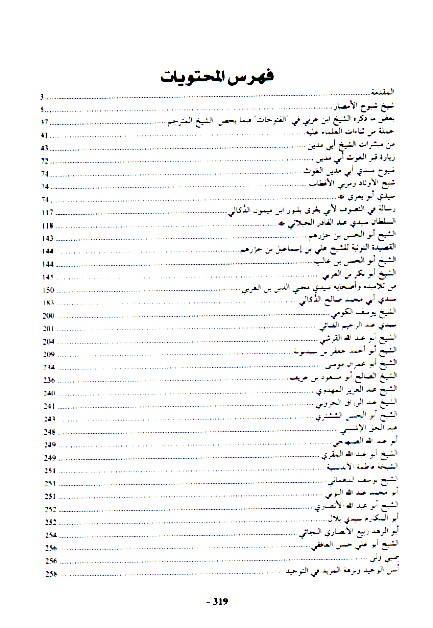 فهرس المحتويات
المقدمة ... 3
شيخ شيوخ الأمصار ... 8
بعض ما ذكره الشيخ ابن عربي في "الفتوحات" فيما يخص الشيخ المترجم ... 37
جملة من ثناءات العلماء عليه ... 41
من مبشرات الشيخ أبي مدين ... 43
زيارة قبر الغوث أبي مدين ... 72
شيوخ سيدي أبي مدين الغوث ... 74
شيخ الأوتاد ومربي الأقطاب ... 74
سيدي أبو يعزى ... 74
رسالة في التصوف لأبي يعزى يلنور ابن ميمون الدكالي ... 117
السلطان سيدي عبد القادر الجيلاني ... 118
الشيخ أبو الحسن بن حرزهم ... 143
القصيدة النونية للشيخ علي بن إسماعيل بن حرزهم ... 144
الشيخ أبو الحسن بن غالب ... 144
الشيخ أبو بكر بن العربي ... 145
من تلاميذه وأصحابه سيدي محيي الدين بن العربي ... 150
سيدي أبي محمد صالح الدكالي ... 183
الشيخ يوسف الكومي ... 200
سيدي عبد الرحيم القنائي ... 201
الشيخ أبو عبد الله القرشي ... 204
الشيخ أبو أحمد جعفر بن سيدبونة ... 209
الشيخ أبو عمران موسى ... 234
الشيخ الصالح أبو مسعود بن عريف ... 236
الشيخ عبد العزيز المهدوي ... 240
الشيخ عبد الرزاق الجزولي ... 241
الشيخ أبو الحسن الششتري ... 243
عبد الحق الإشبيلي ... 248
أبو عبد الله الصنهاجي ... 249
الشيخ أبو عبد الله المقري ... 249
الشيخة فاطمة الأندلسية ... 251
الشيخ يوسف الدهماني ... 251
أبو محمد عبد الله ... 251
الشيخ أبو عبد الله الأنصاري ... 252
أبو المكارم سيدي بلال ... 252
أبو الزهد ربيع الأنصاري البجائي ... 254
الشيخ أبو علي حسن الغافقي ... 256
... 256
أنس الوحيد ونزهة المريد في التوحيد ... 258
- 319